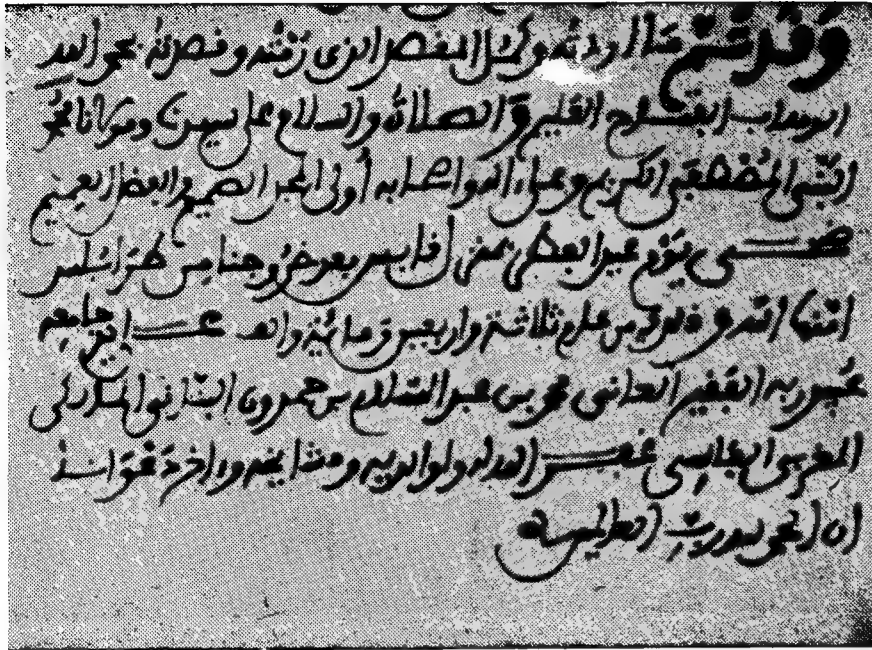 وقد تم ما أردته وكمل الغرض الذي رمته وقصدته بحمد الله
الوهاب الفتاح العليم والصلاة والسلام على سيدنا ومولانا محمد
النبي المصطفى الكريم وعلى ءاله وأصحابه أولى المجد الصميم والفضل العميم
ضحى يوم عيد الفطر بمدينة بعد خروجنا من طرابلس
من عام ثلاثة وأربعين ومائة وألف على يد جامعه
عبيد ربه الفقير الجاني محمد بن عبد السلام بن حمدون البناني
المغربي الفاسي غفر الله له ولوالديه ومشايخه وءاخر دعوانا
أن الحمد لله رب العالمين